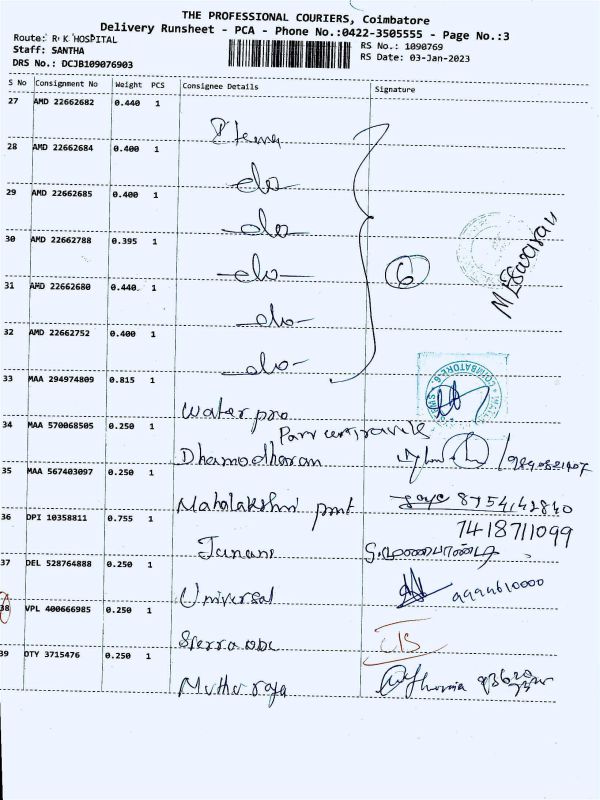 THE PROFESSIONAL COURIERS, Coimbatore
Delivery Runsheet - PCA - Phone No.:0422-3505555 - Page No.:3
Route: R K HOSPITAL
Staff: SANTHA
DRS No.: DCJB109076903
RS No.: 1090769
RS Date: 03-Jan-2023
S No Consignment No Weight PCS Consignee Details Signature
27 AMD 22662682 0.440 1
28 AMD 22662684 0.400 1
-do-
29 AMD 22662685 0.400 1
-do-
30 AMD 22662788 0.395 1
-do-
6
M Eswaran
31 AMD 22662680 0.440 1
-do-
32 AMD 22662752 0.400 1
-do-
33 MAA 294974809 0.815 1
Water pro
COIMBATORE
34 MAA 570068505 0.250 1
Dhamodharan
35 MAA 567403097 0.250 1
Mahalakshmi pmt
8754142840
36 DPI 10358811 0.755 1
Janani
7418711099
37 DEL 528764888 0.250 1
Universal
9994610000
38 VPL 400666985 0.250 1
Sierra odc
39 DTY 3715476 0.250 1
Muthu raja